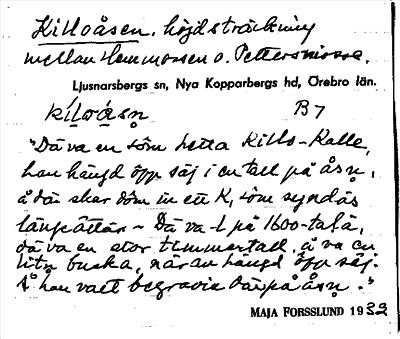 Killoåsen. höjdsträckning
mellan Hemmossen o. Pettersmossa.
Ljusnarsbergs sn, Nya Kopparbergs hd, Örebro län.
kíloåsn̥ B7
"Dä va en söm hetta Killo-Kalle,
han hängd öpp säj i en tall på åsn̥,
å där skar döm in ett K, söm syndäs
längeättär ~ Dä va-t på 1600-talä,
dä va en stor timmertall, å va en
litn̥ buska, när an hängd öpp säj.
Å han vart begravin därpå åsn̥."
MAJA FORSSLUND 1932